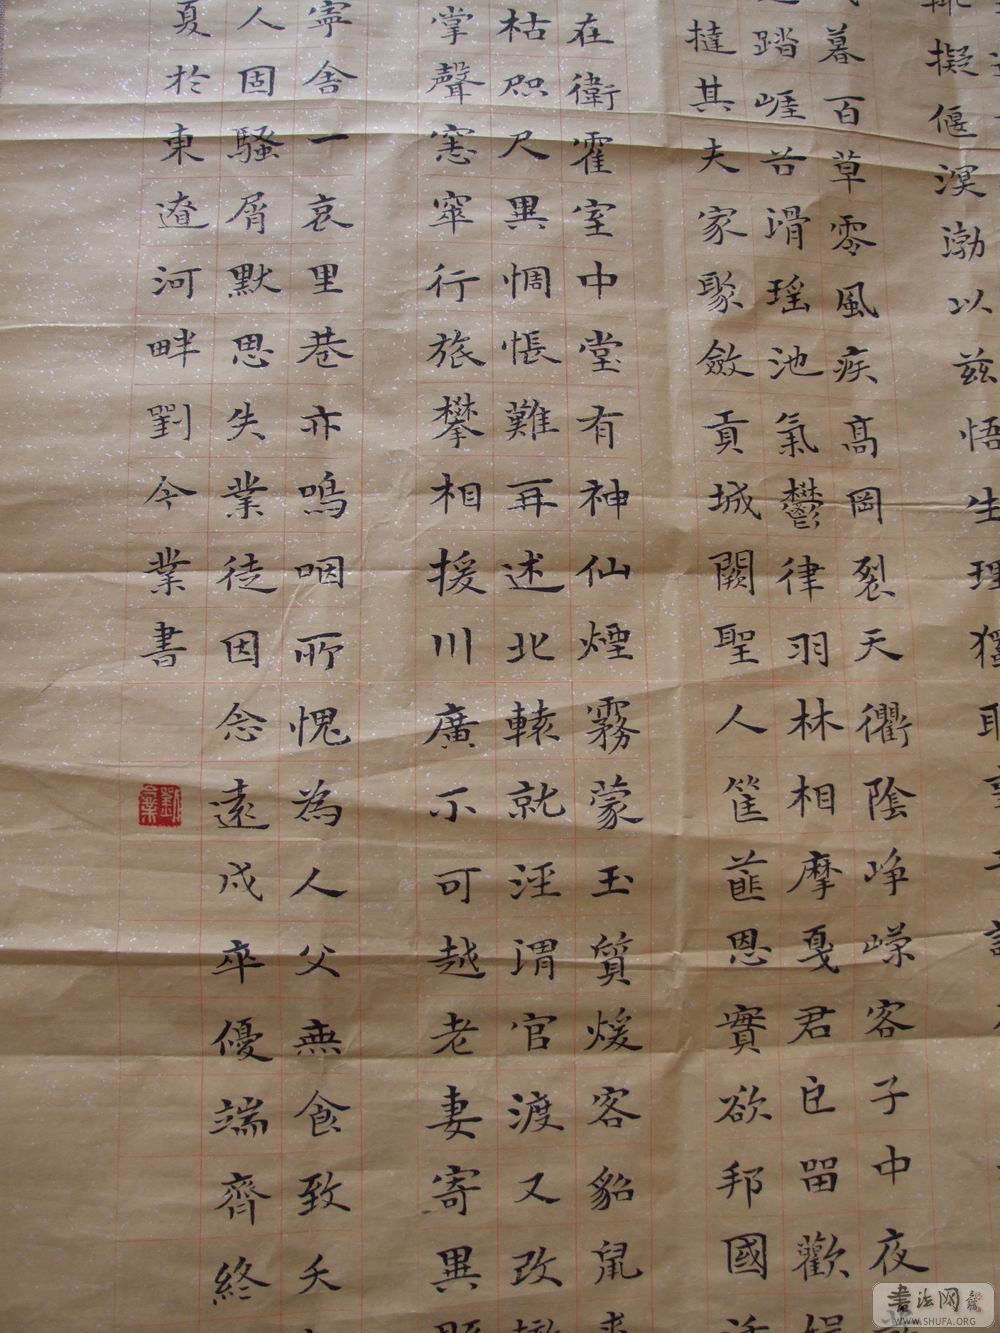 擬偃溟渤以茲悟生理獨恥事干
暮百草零風疾高岡裂天衢陰崢嶸客子中夜
踏崖谷滑瑤池氣鬱律羽林相摩戛君臣留歡
撻其夫家聚斂貢城闕聖人筐篚恩實欲邦國
在衛霍室中堂有神仙煙霧蒙玉質煖客貂鼠裘
枯咫尺異惆悵難再述北轅就涇渭官渡又改轍
掌聲窸窣行旅攀相援川廣不可越老妻寄異縣
寧舍一哀里巷亦嗚咽所愧為人父無食致夭
人固騷屑默思失業徒因念遠戍卒優端齊終
夏於東遼河畔劉今業書
劉今業
书法网
WWW.SHUFA.ORG